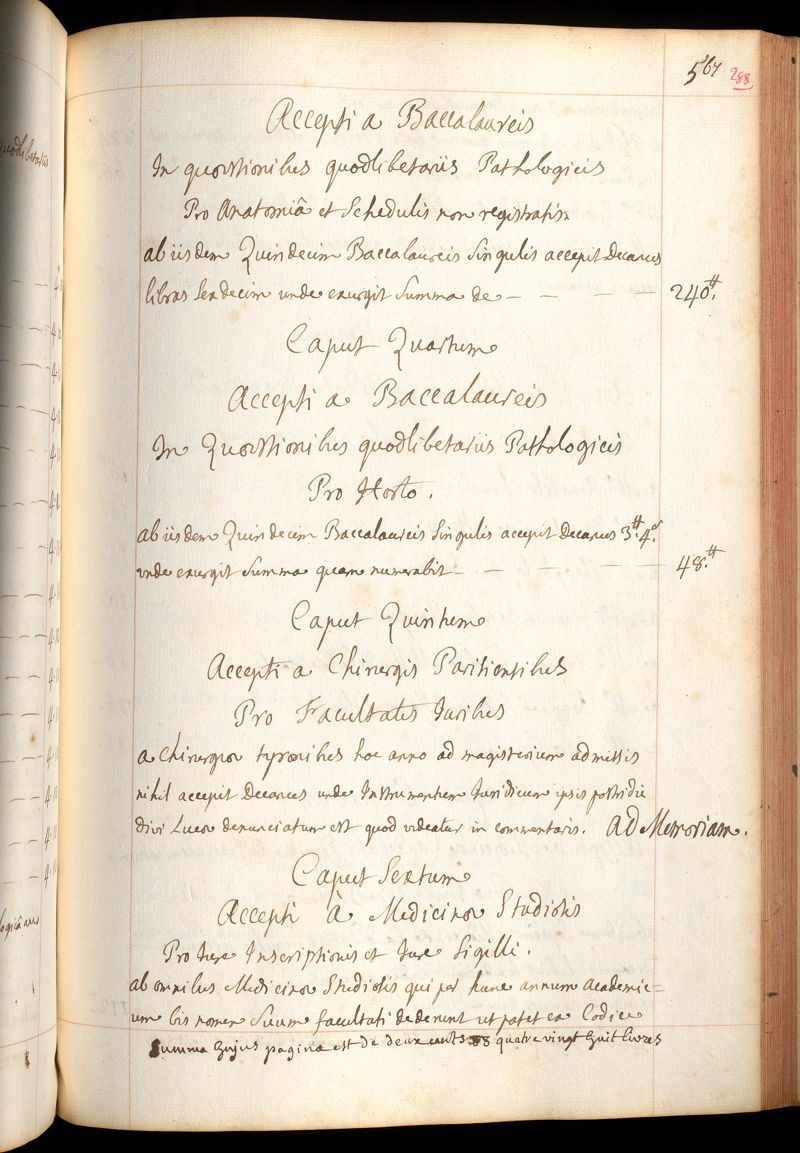 567 288
Accepti a Baccalaureis
In quæstionibus quodlibetariis Pathologicis
Pro Anatomiâ et Schedulis non registratis
ab iisdem Quindecim Baccalaureis Singulis accepit Decanus
libras Sexdecim unde exurgit Summa de — — — — 240.tt
Caput Quartum
Accepti a Baccalaureis
In Quæstionibus quodlibetariis Pathologicis
Pro Horto.
ab iisdem Quindecim Baccalaureis Singulis accepit Decanus 3.tt 4.s
unde exurgit Summa quam numerabit — — — — — 48.tt
Caput Quintum
Accepti a Chirurgis Parisiensibus
Pro Facultatis Juribus
a Chirurgiæ tyronibus hoc anno ad magisterium admissis
nihil accepit Decanus unde Instrumentum Juridicum ipsis postridie
divi Lucæ denunciatum est quod videatur in commentariis. Ad Memoriam.
Caput Sextum
Accepti à Medicinæ Studiosis
Pro Jure Inscriptionis et Jure Sigilli.
ab omnibus Medicinæ Studiosis qui per hunc annum academic=
um bis nomen Suum facultati dederunt ut patet ex Codice
Summa hujus paginæ est de deux cents quatre vingt huit livres
quodlibetariis